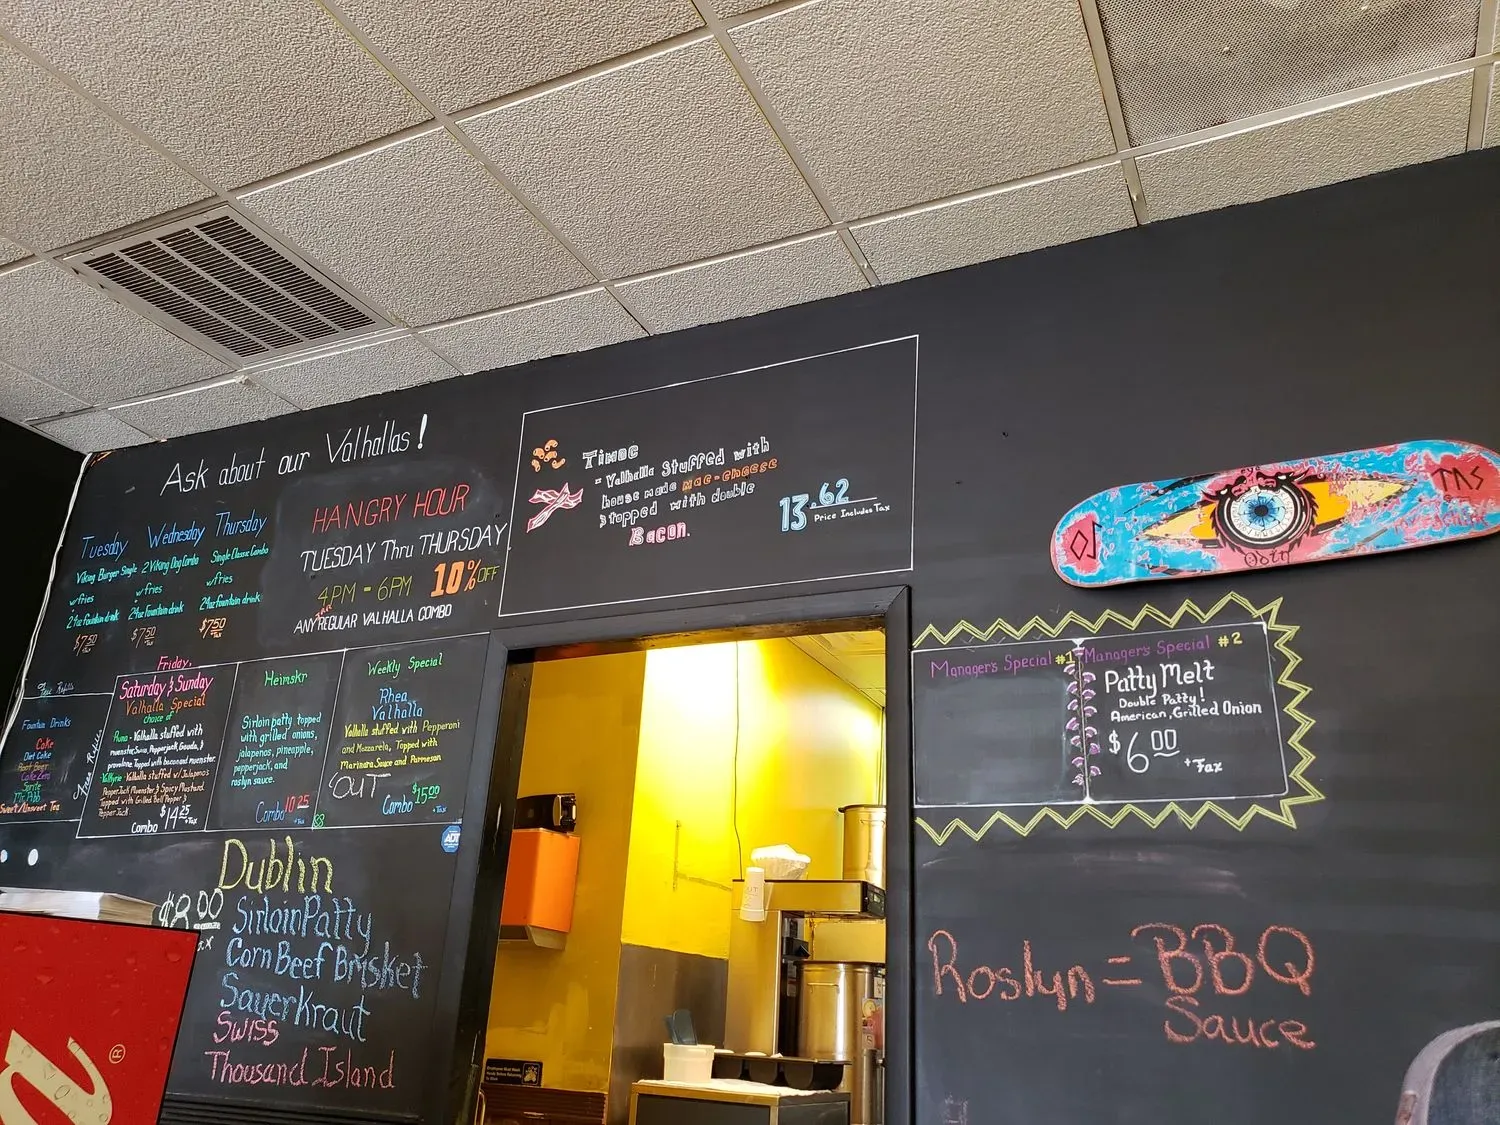 Ask about our Valhallas!
HANGRY HOUR
TUESDAY Thru THURSDAY
4PM - 6PM 10% OFF
ANY REGULAR VALHALLA COMBO
Tuesday
Viking Burger Single
w/fries
24oz fountain drink
$7.50
Wednesday
2 Viking Dog Combo
w/fries
24oz fountain drink
$7.50
+Tax
Thursday
Single Classic Combo
w/fries
24oz fountain drink
$7.50
+Tax
- Valhalla Stuffed with
house made mac-cheese
topped with double
Bacon.
13.62
Price Includes Tax
Free Refills
Fountain Drinks
Coke
Diet Coke
Root Beer
Coke Zero
Sprite
Mr. Pibb
Sweet/Unsweet Tea
Free Refills
Friday,
Saturday & Sunday
Valhalla Special
choice of
Valhalla stuffed with
muenster, Swiss, Pepperjack, Gouda, &
provolone. Topped with bacon and muenster.
Valkyrie - Valhalla stuffed w/ Jalapenos
PepperJack Muenster & Spicy Mustard
Topped with Grilled Bell Pepper &
PepperJack.
Combo $14.25 +Tax
Heimskr
Sirloin patty topped
with grilled onions,
jalapenos, pineapple,
pepperjack, and
roslyn sauce.
Combo 10.25
+Tax
Weekly Special
Rhea
Valhalla
Valhalla stuffed with Pepperoni
and Mozzarela, Topped with
Marinara Sauce and Parmesan
OUT
Combo $15.00
+Tax
ADT
Dublin
$8.00
Sirloin Patty
Corn Beef Brisket
Sauer Kraut
Swiss
Thousand Island
Manager's Special #1
Manager's Special #2
Patty Melt
Double Patty!
American, Grilled Onion
$6.00
+Tax
Roslyn = BBQ
Sauce
®